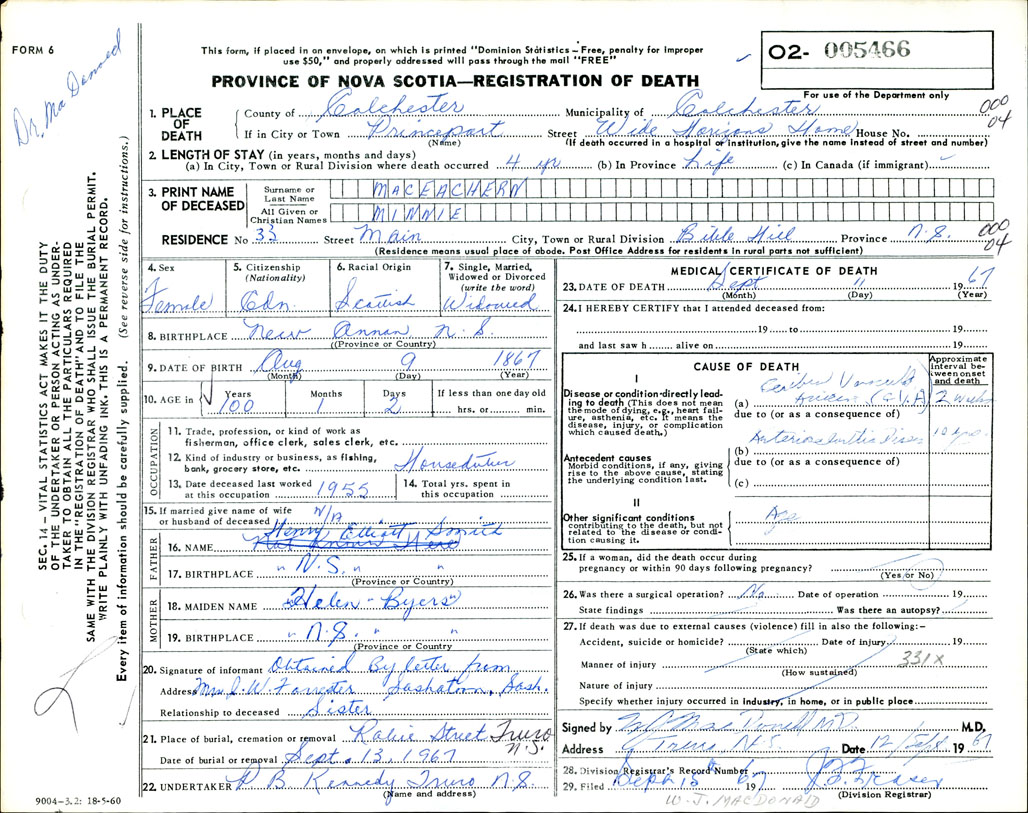 FORM 6
Dr. MacDonald
This form, if placed in an envelope, on which is printed "Dominion Statistics – Free, penalty for improper
use $50," and properly addressed will pass through the mail "FREE"
O2- 005466
PROVINCE OF NOVA SCOTIA—REGISTRATION OF DEATH
For use of the Department only
1. PLACE OF DEATH
County of Colchester Municipality of Colchester 000 04
If in City or Town Princeport Street Wide Horizons Home House No.
(Name) (If death occurred in a hospital or institution, give the name instead of street and number)
2. LENGTH OF STAY (in years, months and days)
(a) In City, Town or Rural Division where death occurred 4 yr (b) In Province Life (c) In Canada (if immigrant)
3. PRINT NAME OF DECEASED
Surname or Last Name MACEACHERN
All Given or Christian Names MINNIE
RESIDENCE No 33 Street Main City, Town or Rural Division Bible Hill Province N.S. 000 04
(Residence means usual place of abode. Post Office Address for residents in rural parts not sufficient)
4. Sex Female
5. Citizenship (Nationality) Cdn.
6. Racial Origin Scottish
7. Single, Married, Widowed or Divorced (write the word) Widowed
8. BIRTHPLACE New Annan N.S.
(Province or Country)
9. DATE OF BIRTH Aug 9 1867
(Month) (Day) (Year)
10. AGE in Years 100 Months 1 Days 2 If less than one day old hrs. or min.
OCCUPATION
11. Trade, profession, or kind of work as
fisherman, office clerk, sales clerk, etc.
12. Kind of industry or business, as fishing,
bank, grocery store, etc. Houseduties
13. Date deceased last worked at this occupation 1955
14. Total yrs. spent in this occupation
15. If married give name of wife
or husband of deceased N/A
FATHER
Henry Elliott Smith
16. NAME
17. BIRTHPLACE " N.S. " "
(Province or Country)
MOTHER
18. MAIDEN NAME "Helen - Byers"
19. BIRTHPLACE " N.S. " "
(Province or Country)
20. Signature of informant Obtained By letter from
Address Mrs J. W. Forrester Saskatoon, Sask.
Relationship to deceased Sister
21. Place of burial, cremation or removal Robie Street Truro N.S.
Date of burial or removal Sept. 13, 1967
22. UNDERTAKER R B Kennedy Truro N.S.
(Name and address)
9004–3.2: 18-5-60
MEDICAL CERTIFICATE OF DEATH
23. DATE OF DEATH Sept 11 1967
(Month) (Day) (Year)
24. I HEREBY CERTIFY that I attended deceased from:
19 to 19
and last saw h alive on 19
CAUSE OF DEATH
Approximate interval between onset and death
I
Disease or condition directly leading to death (This does not mean the mode of dying, e.g., heart failure, asthenia, etc. It means the disease, injury, or complication which caused death.)
(a) (C.V.A) 2 weeks
due to (or as a consequence of)
Antecedent causes
Morbid conditions, if any, giving rise to the above cause, stating the underlying condition last.
(b) 10 yrs.
due to (or as a consequence of)
(c)
II
Other significant conditions contributing to the death, but not related to the disease or condition causing it.
Age
25. If a woman, did the death occur during
pregnancy or within 90 days following pregnancy?
(Yes or No)
26. Was there a surgical operation? No Date of operation 19
State findings Was there an autopsy?
27. If death was due to external causes (violence) fill in also the following:–
Accident, suicide or homicide? Date of injury 19
(State which)
Manner of injury 331X
(How sustained)
Nature of injury
Specify whether injury occurred in industry, in home, or in public place
Signed by MacDonald MD M.D.
Address Truro, N.S. Date 12/Sept 1967
28. Division Registrar's Record Number
29. Filed Sept 15th 1967 J.B. Fraser
(Division Registrar)
W. J. MACDONALD
SEC. 14 – VITAL STATISTICS ACT MAKES IT THE DUTY
OF THE UNDERTAKER OR PERSON ACTING AS UNDER-
TAKER TO OBTAIN ALL THE PARTICULARS REQUIRED
IN THE "REGISTRATION OF DEATH" AND TO FILE THE
SAME WITH THE DIVISION REGISTRAR WHO SHALL ISSUE THE BURIAL PERMIT.
WRITE PLAINLY WITH UNFADING INK. THIS IS A PERMANENT RECORD.
Every item of information should be carefully supplied. (See reverse side for instructions.)